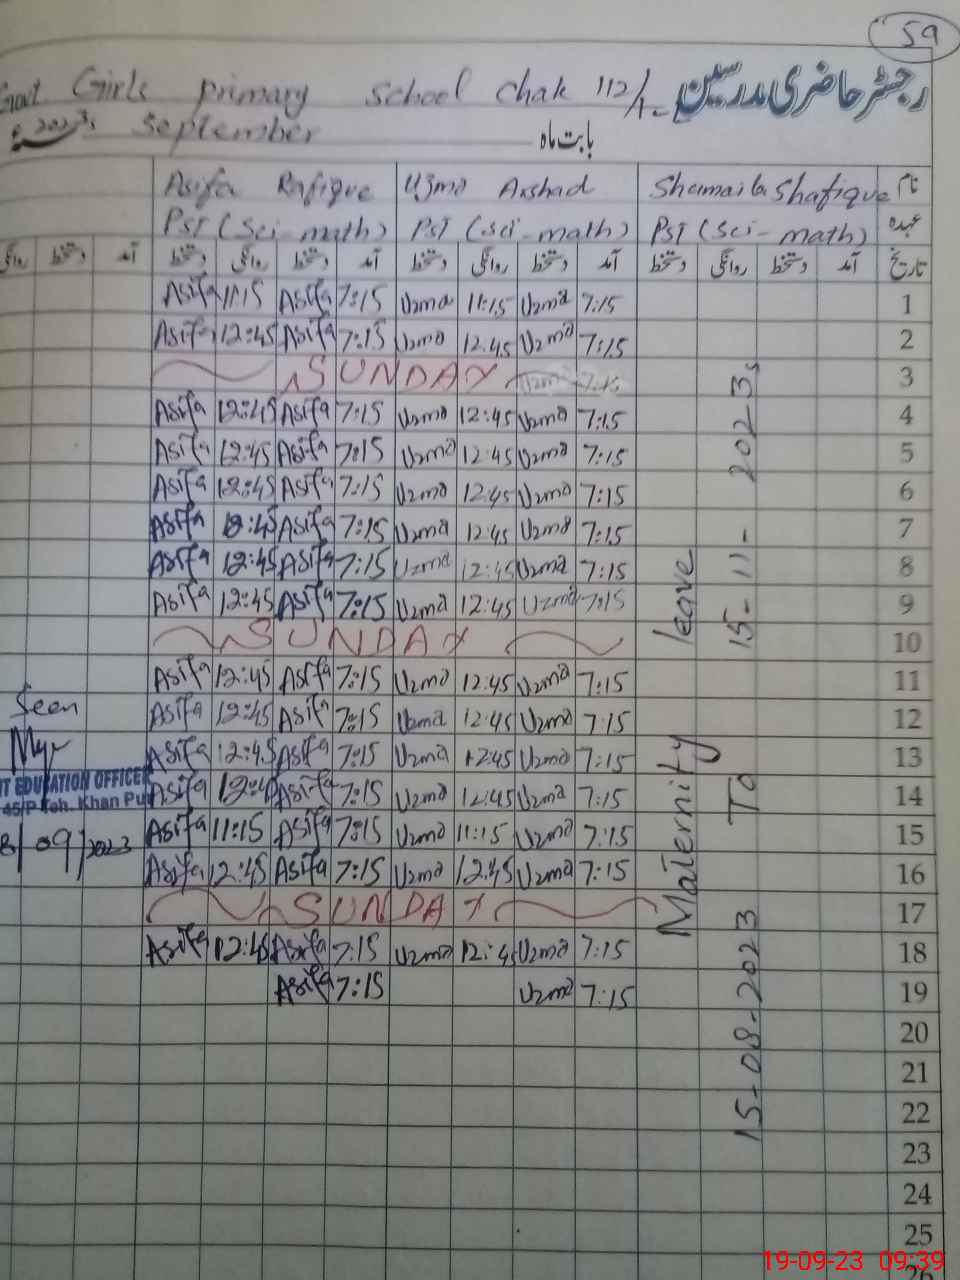 59
رجسٹر حاضری مدرسین
Govt Girls primary school Chak 112/1-L
بابت ماہ September 2023ء
نام Shamaila Shafique Uzma Arshad Asifa Rafique
عہدہ PST (Sci-math) PST (Sci-math) PST (Sci-math)
تاریخ آمد دستخط روانگی دستخط آمد دستخط روانگی دستخط آمد دستخط روانگی دستخط آمد دستخط روانگی
Asifa 11:15 Asifa 7:15 Uzma 11:15 Uzma 7:15 1
Asifa 12:45 Asifa 7:15 Uzma 12:45 Uzma 7:15 2
SUNDAY Uzma 7:15 3
Asifa 12:45 Asifa 7:15 Uzma 12:45 Uzma 7:15 4
Asifa 12:45 Asifa 7:15 Uzma 12:45 Uzma 7:15 5
Asifa 12:45 Asifa 7:15 Uzma 12:45 Uzma 7:15 6
Asifa 12:45 Asifa 7:15 Uzma 12:45 Uzma 7:15 7
Asifa 12:45 Asifa 7:15 Uzma 12:45 Uzma 7:15 8
Asifa 12:45 Asifa 7:15 Uzma 12:45 Uzma 7:15 9
SUNDAY 10
Asifa 12:45 Asifa 7:15 Uzma 12:45 Uzma 7:15 11
Asifa 12:45 Asifa 7:15 Uzma 12:45 Uzma 7:15 12
Asifa 12:45 Asifa 7:15 Uzma 12:45 Uzma 7:15 13
Asifa 12:45 Asifa 7:15 Uzma 12:45 Uzma 7:15 14
Asifa 11:15 Asifa 7:15 Uzma 11:15 Uzma 7:15 15
Asifa 12:45 Asifa 7:15 Uzma 12:45 Uzma 7:15 16
SUNDAY 17
Asifa 12:45 Asifa 7:15 Uzma 12:45 Uzma 7:15 18
Asifa 7:15 Uzma 7:15 19
20
21
22
23
24
25
26
Maternity leave
15-08-2023 To 15-11-2023
Seen
EDUCATION OFFICER
45/P Teh. Khan Pur
8/09/2023
19-09-23 09:39